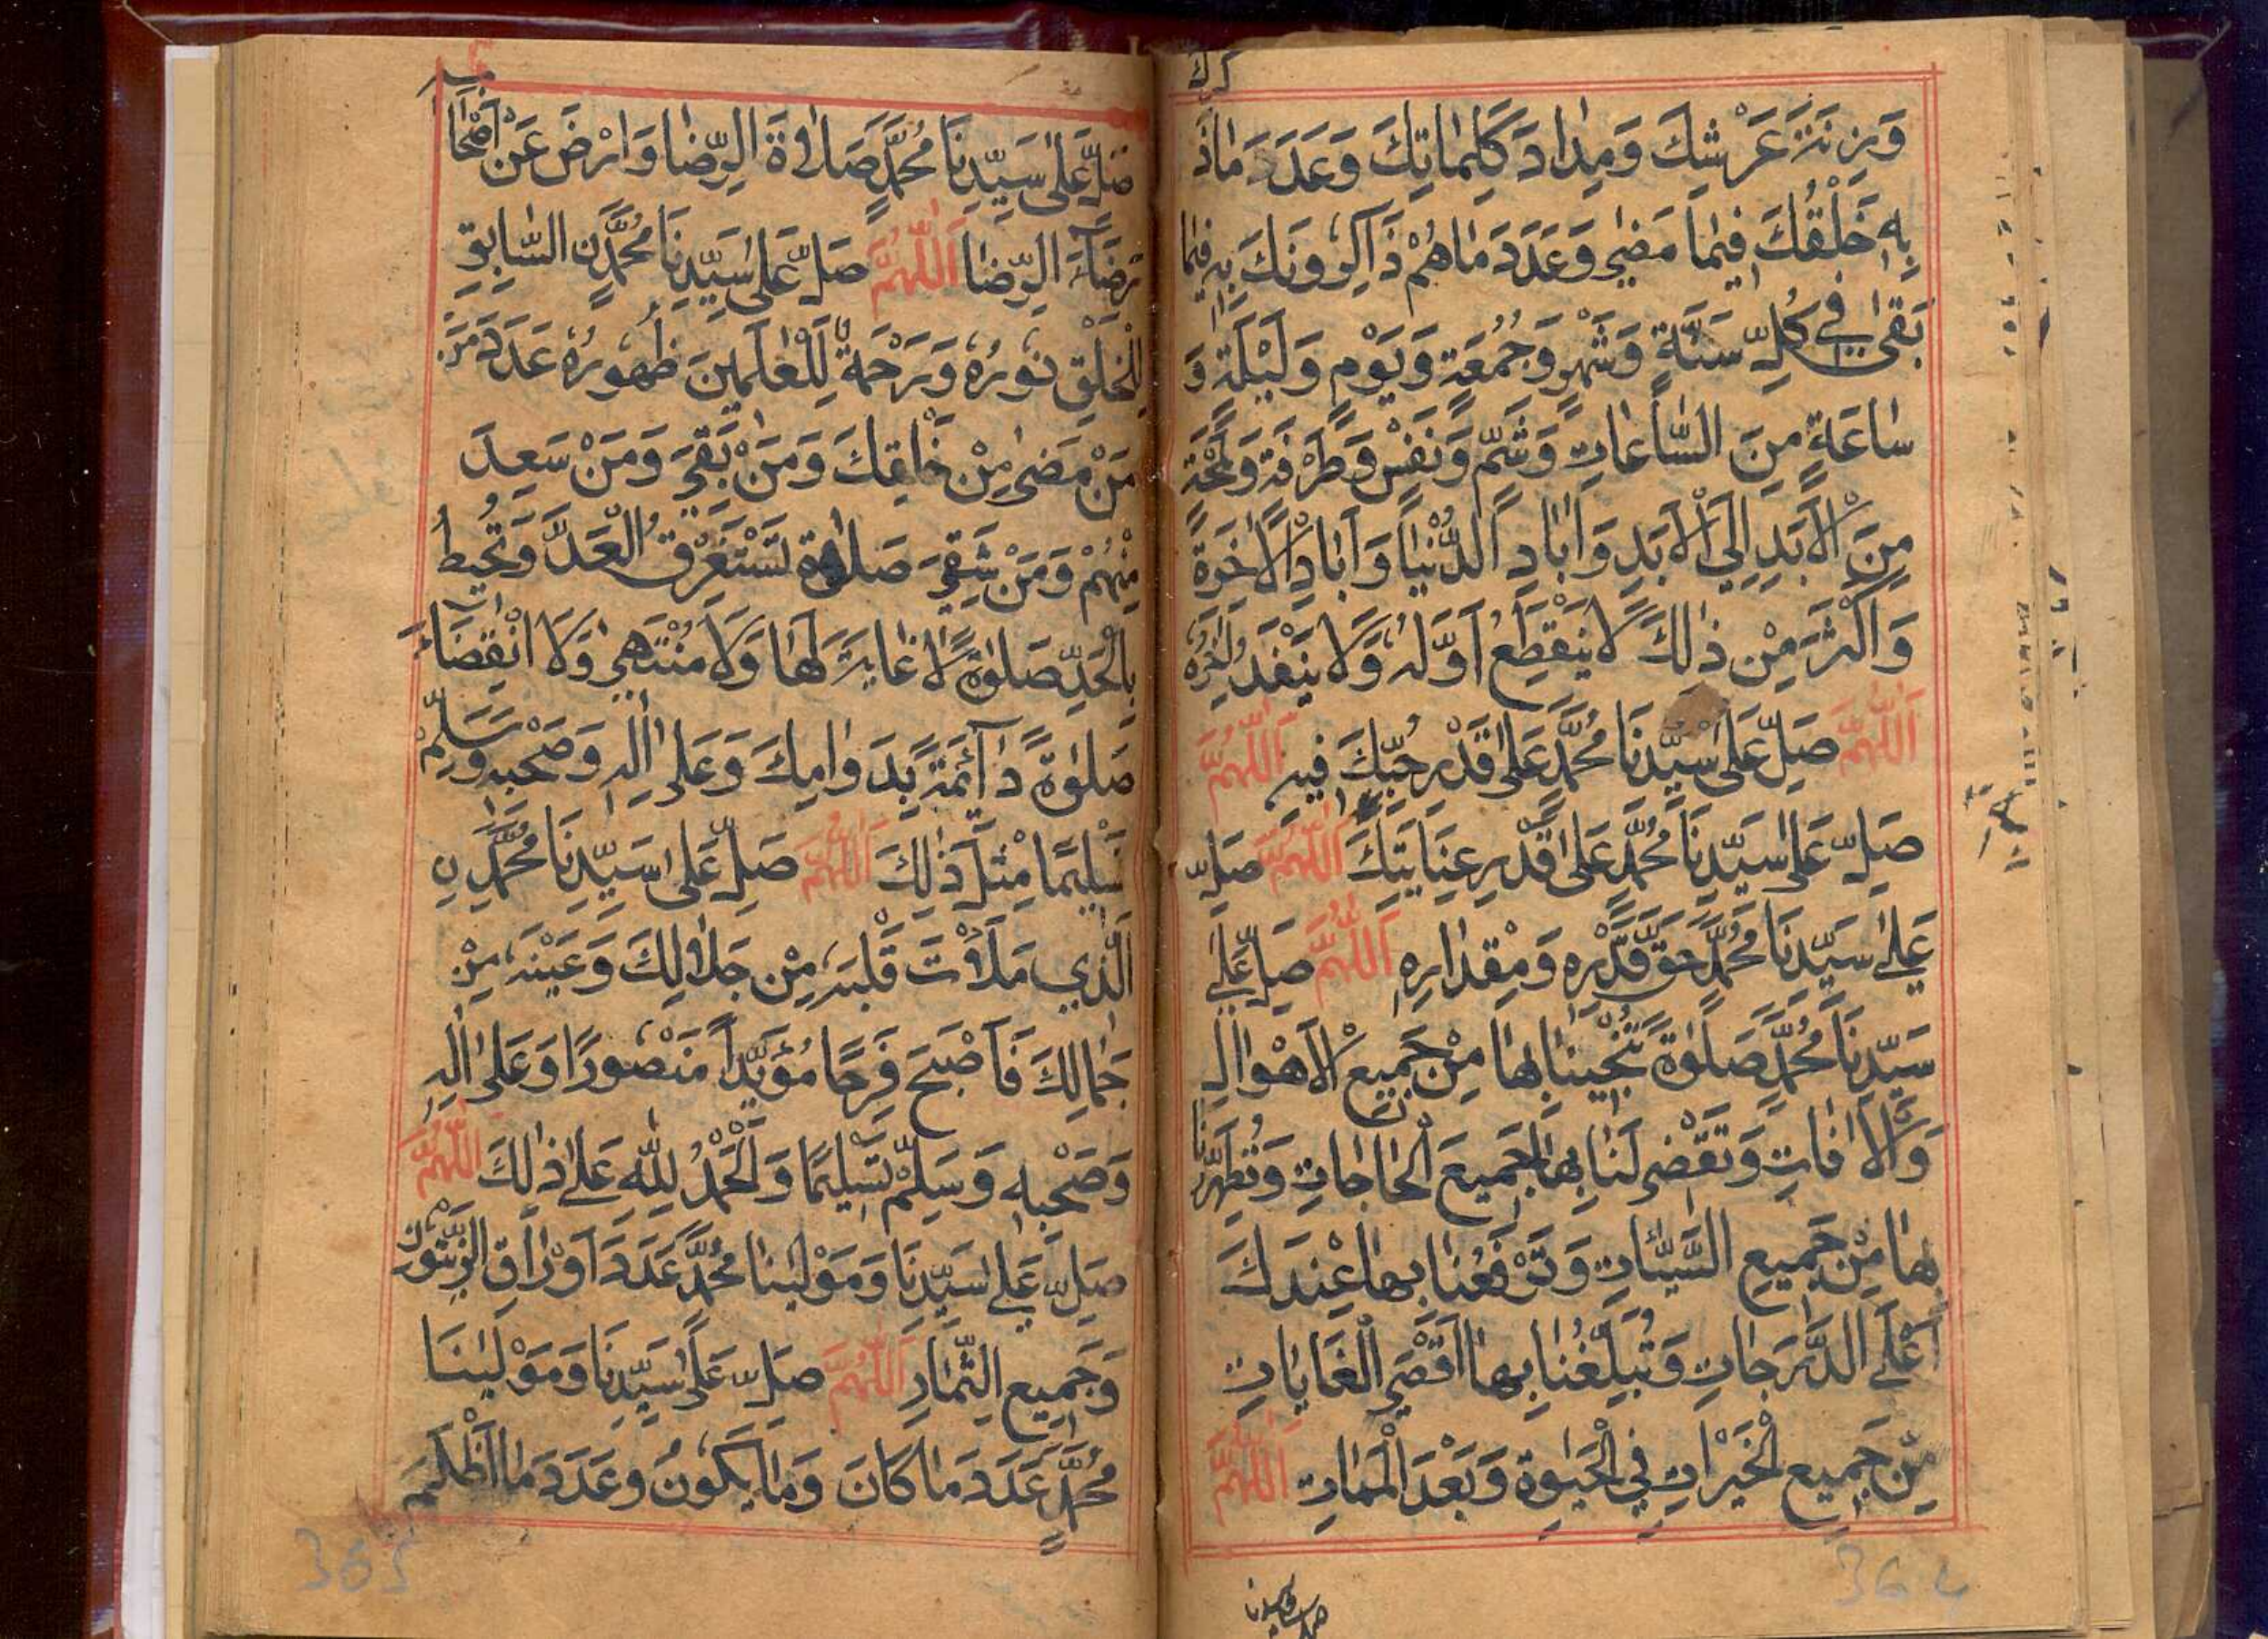 كرك
وَزِنَةَ عَرْشِكَ وَمِدَادَ كَلِمَاتِكَ وَعَدَدَ مَاذَ
بِهِ خَلْقُكَ فِيمَا مَضٰى وَعَدَدَ مَاهُمْ ذَاكِرُونَكَ بِهِ فِيمَا
بَقِىَ فِي كُلِّ سَنَةٍ وَشَهْرٍ وَجُمُعَةٍ وَيَوْمٍ وَلَيْلَةٍ وَ
سَاعَةٍ مِنَ السَّاعَاتِ وَشَمٍّ وَنَفَسٍ وَطَرْفَةٍ وَلَمْحَةٍ
مِنَ الْاَبَدِ اِلَي الْاَبَدِ وَاٰبَادِ الدُّنْيَا وَاٰبَادِ الْاٰخِرَةِ
وَاَكْثَرَ مِنْ ذٰلِكَ لَا يَنْقَطِعُ اَوَّلُهُ وَلَا يَنْفَدُ اٰخِرُهُ
اَللّٰهُمَّ صَلِّ عَلٰى سَيِّدِنَا مُحَمَّدٍ عَلٰى قَدْرِ حُبِّكَ فِيهِ اَللّٰهُمَّ
صَلِّ عَلٰى سَيِّدِنَا مُحَمَّدٍ عَلٰى قَدْرِ عِنَايَتِكَ اَللّٰهُمَّ صَلِّ
عَلٰي سَيِّدِنَا مُحَمَّدٍ حَقَّ قَدْرِهِ وَمِقْدَارِهِ اَللّٰهُمَّ صَلِّ عَلٰي
سَيِّدِنَا مُحَمَّدٍ صَلٰوةً تُنْجِينَا بِهَا مِنْ جَمِيعِ الْاَهْوَالِ
وَالْاٰفَاتِ وَتَقْضِى لَنَا بِهَا جَمِيعَ الْحَاجَاتِ وَتُطَهِّرُنَا
بِهَا مِنْ جَمِيعِ السَّيِّئَاتِ وَتَرْفَعُنَا بِهَا عِنْدَكَ
اَعْلَي الدَّرَجَاتِ وَتُبَلِّغُنَا بِهَا اَقْصَى الْغَايَاتِ
مِنْ جَمِيعِ الْخَيْرَاتِ فِي الْحَيٰوةِ وَبَعْدَ الْمَمَاتِ اَللّٰهُمَّ
364
صَلِّ عَلٰى سَيِّدِنَا مُحَمَّدٍ صَلَاةَ الرِّضَا وَارْضَ عَنْ اَصْحَا
بِهِ
رِضَآءَ الرِّضَا اَللّٰهُمَّ صَلِّ عَلٰى سَيِّدِنَا مُحَمَّدٍ نِ السَّابِقِ
لِلْخَلْقِ نُورُهُ وَرَحْمَةٌ لِلْعٰلَمِينَ ظُهُورُهُ عَدَدَ مَنْ
مَنْ مَضٰى مِنْ خَلْقِكَ وَمَنْ بَقِيَ وَمَنْ سَعِدَ
مِنْهُمْ وَمَنْ شَقِيَ صَلَاةً تَسْتَغْرِقُ الْعَدَّ وَتُحِيطُ
بِالْحَدِّ صَلٰوةً لَا غَايَةَ لَهَا وَلَا مُنْتَهٰى وَلَا انْقِضَاءَ
صَلٰوةً دَآئِمَةً بِدَوَامِكَ وَعَلٰى اٰلِهِ وَصَحْبِهِ وَسَلِّمْ
تَسْلِيمًا مِثْلَ ذٰلِكَ اَللّٰهُمَّ صَلِّ عَلٰى سَيِّدِنَا مُحَمَّدٍ نِ
الَّذِي مَلَأْتَ قَلْبَهُ مِنْ جَلَالِكَ وَعَيْنَهُ مِنْ
جَمَالِكَ فَاَصْبَحَ فَرِحًا مُؤَيَّدًا مَنْصُورًا وَعَلٰى اٰلِهِ
وَصَحْبِهِ وَسَلِّمْ تَسْلِيمًا وَالْحَمْدُ لِلّٰهِ عَلٰي ذٰلِكَ اَللّٰهُمَّ
صَلِّ عَلٰي سَيِّدِنَا وَمَوْلٰينَا مُحَمَّدٍ عَدَدَ اَوْرَاقِ الزَّيْتُونِ
وَجَمِيعِ الثِّمَارِ اَللّٰهُمَّ صَلِّ عَلٰى سَيِّدِنَا وَمَوْلٰينَا
مُحَمَّدٍ عَدَدَ مَا كَانَ وَمَا يَكُونُ وعَدَدَ مَا اَظْلَمَ
365